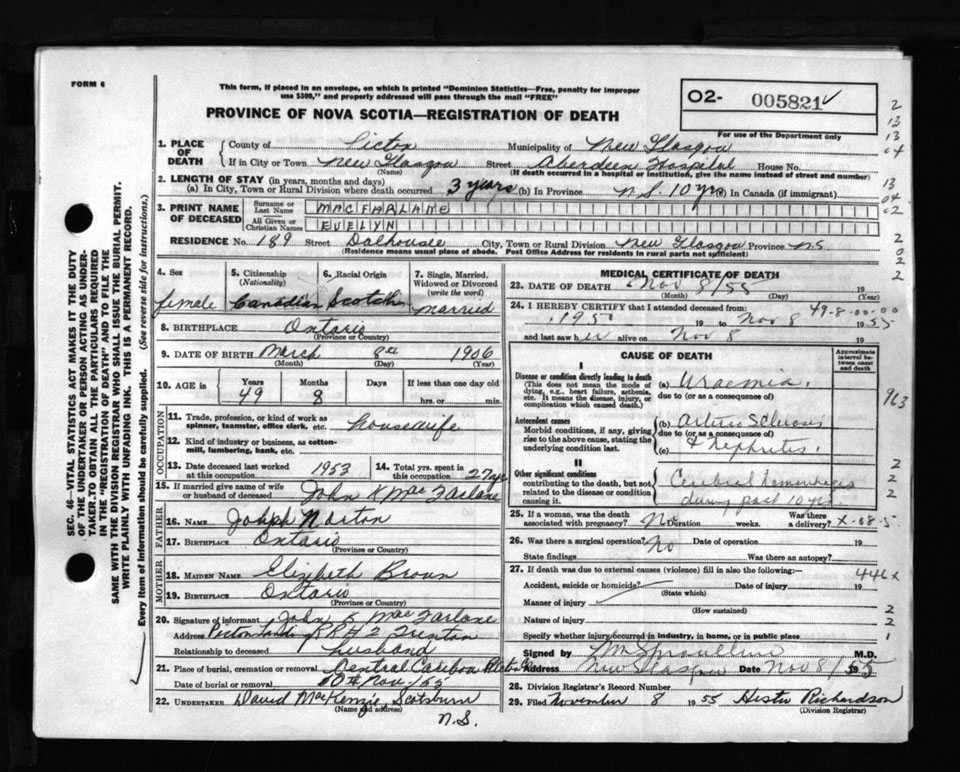 FORM 6
This form, if placed in an envelope, on which is printed "Dominion Statistics—Free, penalty for improper
use $300," and properly addressed will pass through the mail "FREE"
PROVINCE OF NOVA SCOTIA—REGISTRATION OF DEATH
O2- 005821
For use of the Department only
1. PLACE OF DEATH
County of Pictou Municipality of New Glasgow
If in City or Town New Glasgow Street Aberdeen Hospital House No.
(Name) (If death occurred in a hospital or institution, give the name instead of street and number)
2. LENGTH OF STAY (in years, months and days)
(a) In City, Town or Rural Division where death occurred 3 years (b) in Province N.S. 10 yrs (c) In Canada (if immigrant)
3. PRINT NAME OF DECEASED
Surname or Last Name MACFARLANE
All Given or Christian Names EVELYN
RESIDENCE No. 189 Street Dalhousie City, Town or Rural Division New Glasgow Province N.S
(Residence means usual place of abode. Post Office Address for residents in rural parts not sufficient)
4. Sex female
5. Citizenship (Nationality) Canadian
6. Racial Origin Scotch
7. Single, Married, Widowed or Divorced (write the word) married
8. BIRTHPLACE Ontario
(Province or Country)
9. DATE OF BIRTH March 8th 1906
(Month) (Day) (Year)
10. AGE in Years 49 Months 8 Days If less than one day old hrs. or min.
OCCUPATION
11. Trade, profession, or kind of work as spinner, teamster, office clerk, etc. housewife
12. Kind of industry or business, as cotton-mill, lumbering, bank, etc.
13. Date deceased last worked at this occupation 1953
14. Total yrs. spent in this occupation 27 yrs
15. If married give name of wife or husband of deceased John K MacFarlane
FATHER
16. NAME Joseph Norton
17. BIRTHPLACE Ontario
(Province or Country)
MOTHER
18. MAIDEN NAME Elizabeth Brown
19. BIRTHPLACE Ontario
(Province or Country)
20. Signature of informant John K MacFarlane
Address Pictou Landing RR#2 Trenton
Relationship to deceased husband
21. Place of burial, cremation or removal Central Caribou Pictou Co
Date of burial or removal 10th Nov/55
22. UNDERTAKER David MacKenzie Scotsburn
(Name and address)
N.S.
MEDICAL CERTIFICATE OF DEATH
23. DATE OF DEATH Nov 8/55 19
(Month) (Day) (Year)
24. I HEREBY CERTIFY that I attended deceased from: 49-8-00-00
19 to Nov 8 1955
and last saw her alive on Nov 8 19
CAUSE OF DEATH
Approximate interval between onset and death
I
Disease or condition directly leading to death
(This does not mean the mode of dying, e.g., heart failure, asthenia, etc. It means the disease, injury, or complication which caused death.)
(a) Uraemia.
due to (or as a consequence of)
Antecedent causes
Morbid conditions, if any, giving rise to the above cause, stating the underlying condition last.
(b) Arterio Sclerosis
due to (or as a consequence of)
(c) & Nephritis
II
Other significant conditions contributing to the death, but not related to the disease or condition causing it.
Cerebral Hemorrhages
during past 10 yrs
25. If a woman, was the death associated with pregnancy? No Duration weeks. Was there a delivery?
26. Was there a surgical operation? No Date of operation 19
State findings Was there an autopsy?
27. If death was due to external causes (violence) fill in also the following:—
446 x
Accident, suicide or homicide? Date of injury 19
(State which)
Manner of injury
(How sustained)
Nature of injury
Specify whether injury occurred in industry, in home, or in public place
Signed by M.D.
Address New Glasgow Date Nov 8/55
28. Division Registrar's Record Number
29. Filed November 8 1955 Hester Richardson
(Division Registrar)
SEC. 46—VITAL STATISTICS ACT MAKES IT THE DUTY
OF THE UNDERTAKER OR PERSON ACTING AS UNDER-
TAKER, TO OBTAIN ALL THE PARTICULARS REQUIRED
IN THE "REGISTRATION OF DEATH" AND TO FILE THE
SAME WITH THE DIVISION REGISTRAR WHO SHALL ISSUE THE BURIAL PERMIT.
WRITE PLAINLY WITH UNFADING INK. THIS IS A PERMANENT RECORD.
Every item of information should be carefully supplied. (See reverse side for instructions.)